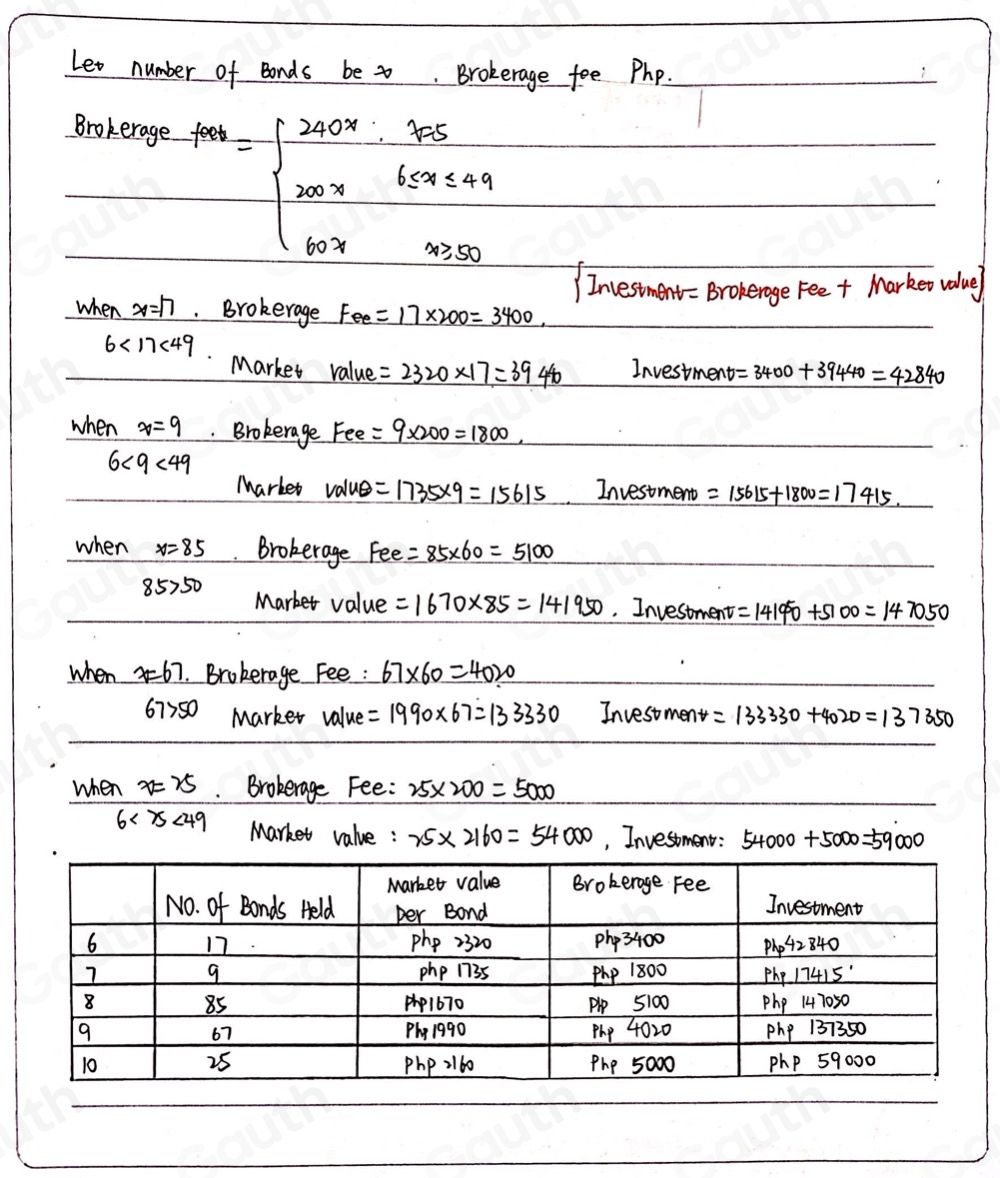 Let number of Bonds be x . Brokerage fee Php.
Brokerage feet = { 240x . x=5
200x 6≤x≤49
60x x≥50
{Investment= Brokerage Fee + Market value}
when x=17 . Brokerage Fee = 17×200= 3400.
6<17<49 . Market value= 2320×17=39440 Investment= 3400+39440=42840
when x=9 . Brokerage Fee = 9×200=1800.
6<9<49
Market value=1735×9=15615 . Investment = 15615+1800=17415.
when x=85 . Brokerage Fee= 85×60= 5100
85>50
Market value=1670×85=141950. Investment=141950+5100=147050
when x=67. Brokerage Fee : 67×60=4020
67>50 Market value= 1990×67=133330 Investment= 133330+4020=137350
when x=25 . Brokerage Fee: 25×200=5000
6<25<49 Market value : 25×2160=54000, Investment: 54000+5000=59000
No. of Bonds Held Market value per Bond Brokerage Fee Investment
6 17 . Php 2320 Php3400 Php42840
7 9 php 1735 Php 1800 Php 17415
8 85 Php1670 Php 5100 Php 147050
9 67 Php 1990 Php 4020 Php 137350
10 25 Php 2160 Php 5000 Php 59000
Gauth